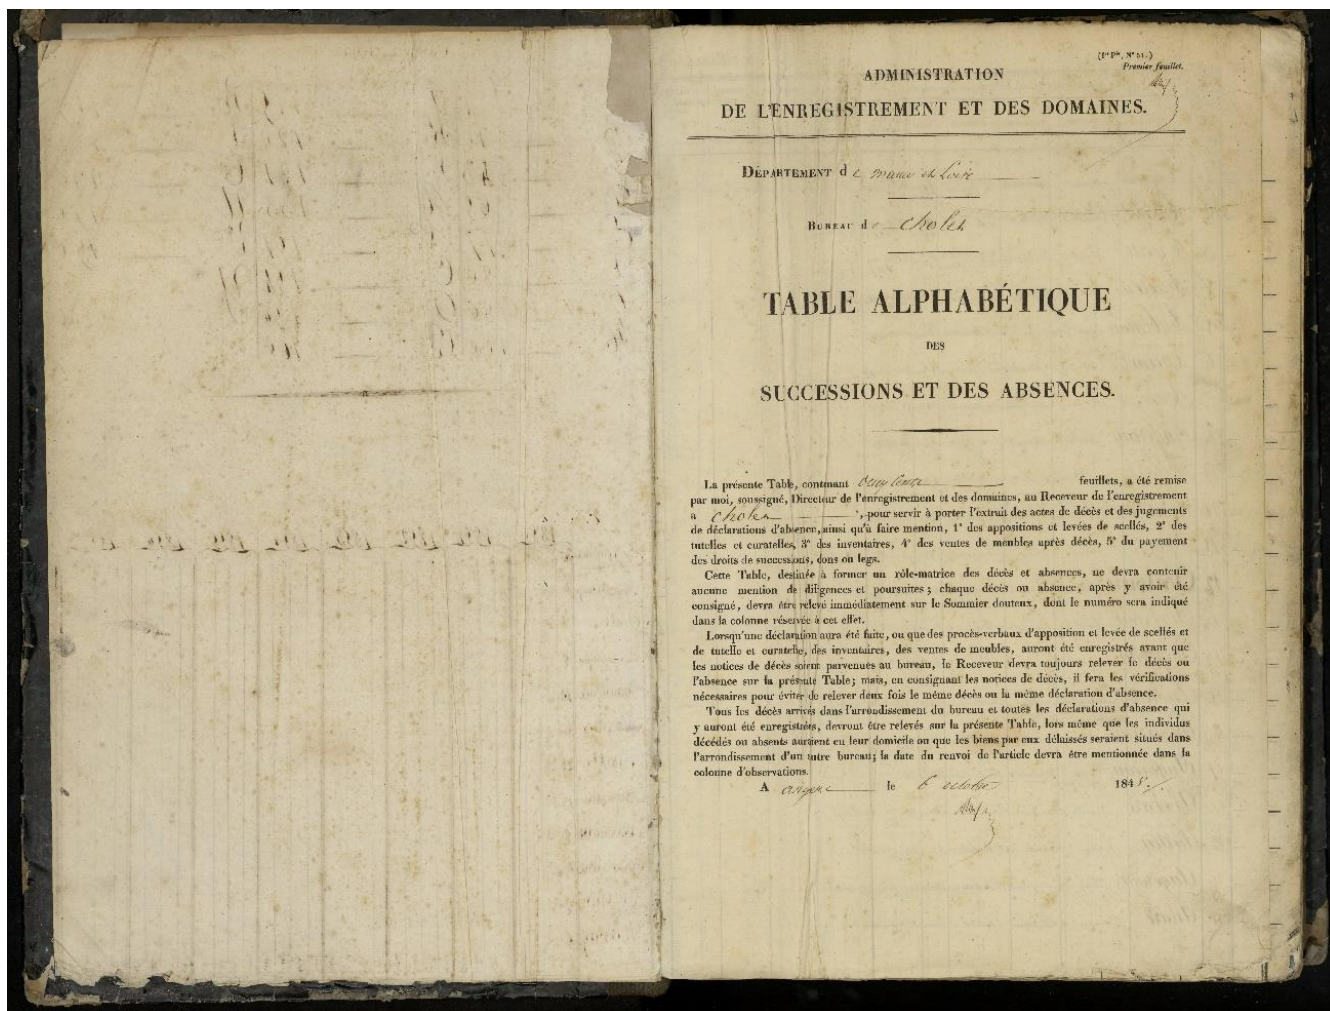 (1re Pie, N° 51.)
Premier feuillet.
ADMINISTRATION
DE L'ENREGISTREMENT ET DES DOMAINES.
DÉPARTEMENT de maine et Loire
BUREAU de Cholet
TABLE ALPHABÉTIQUE
DES
SUCCESSIONS ET DES ABSENCES.
La présente Table, contenant feuillets, a été remise
par moi, soussigné, Directeur de l'enregistrement et des domaines, au Receveur de l'enregistrement
a Cholet, pour servir à porter l'extrait des actes de décès et des jugements
de déclarations d'absence, ainsi qu'à faire mention, 1° des appositions et levées de scellés, 2° des
tutelles et curatelles, 3° des inventaires, 4° des ventes de meubles après décès, 5° du payement
des droits de successions, dons ou legs.
Cette Table, destinée à former un rôle-matrice des décès et absences, ne devra contenir
aucune mention de diligences et poursuites; chaque décès ou absence, après y avoir été
consigné, devra être relevé immédiatement sur le Sommier douteux, dont le numéro sera indiqué
dans la colonne réservée à cet effet.
Lorsqu'une déclaration aura été faite, ou que des procès-verbaux d'apposition et levée de scellés et
de tutelle et curatelle, des inventaires, des ventes de meubles, auront été enregistrés avant que
les notices de décès soient parvenues au bureau, le Receveur devra toujours relever le décès ou
l'absence sur la présente Table; mais, en consignant les notices de décès, il fera les vérifications
nécessaires pour éviter de relever deux fois le même décès ou la même déclaration d'absence.
Tous les décès arrivés dans l'arrondissement du bureau et toutes les déclarations d'absence qui
y auront été enregistrées, devront être relevés sur la présente Table, lors même que les individus
décédés ou absents auraient eu leur domicile ou que les biens par eux délaissés seraient situés dans
l'arrondissement d'un autre bureau; la date du renvoi de l'article devra être mentionnée dans la
colonne d'observations.
A angers le 6 octobre 184